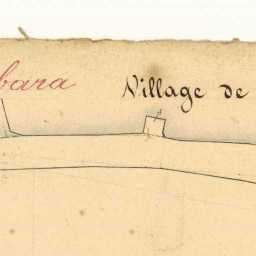 bara Village de